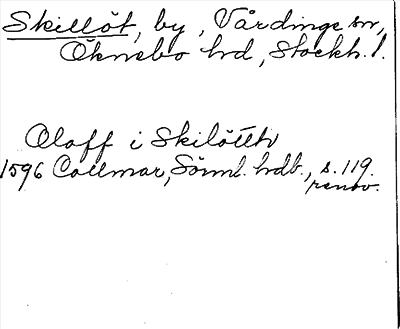 Skillöt, by, Vårdinge sn,
Öknebo hrd, Stockh. l.
Oloff i Skilötth
1596 Collmar, Sörml. hdb., s. 119.
renov.